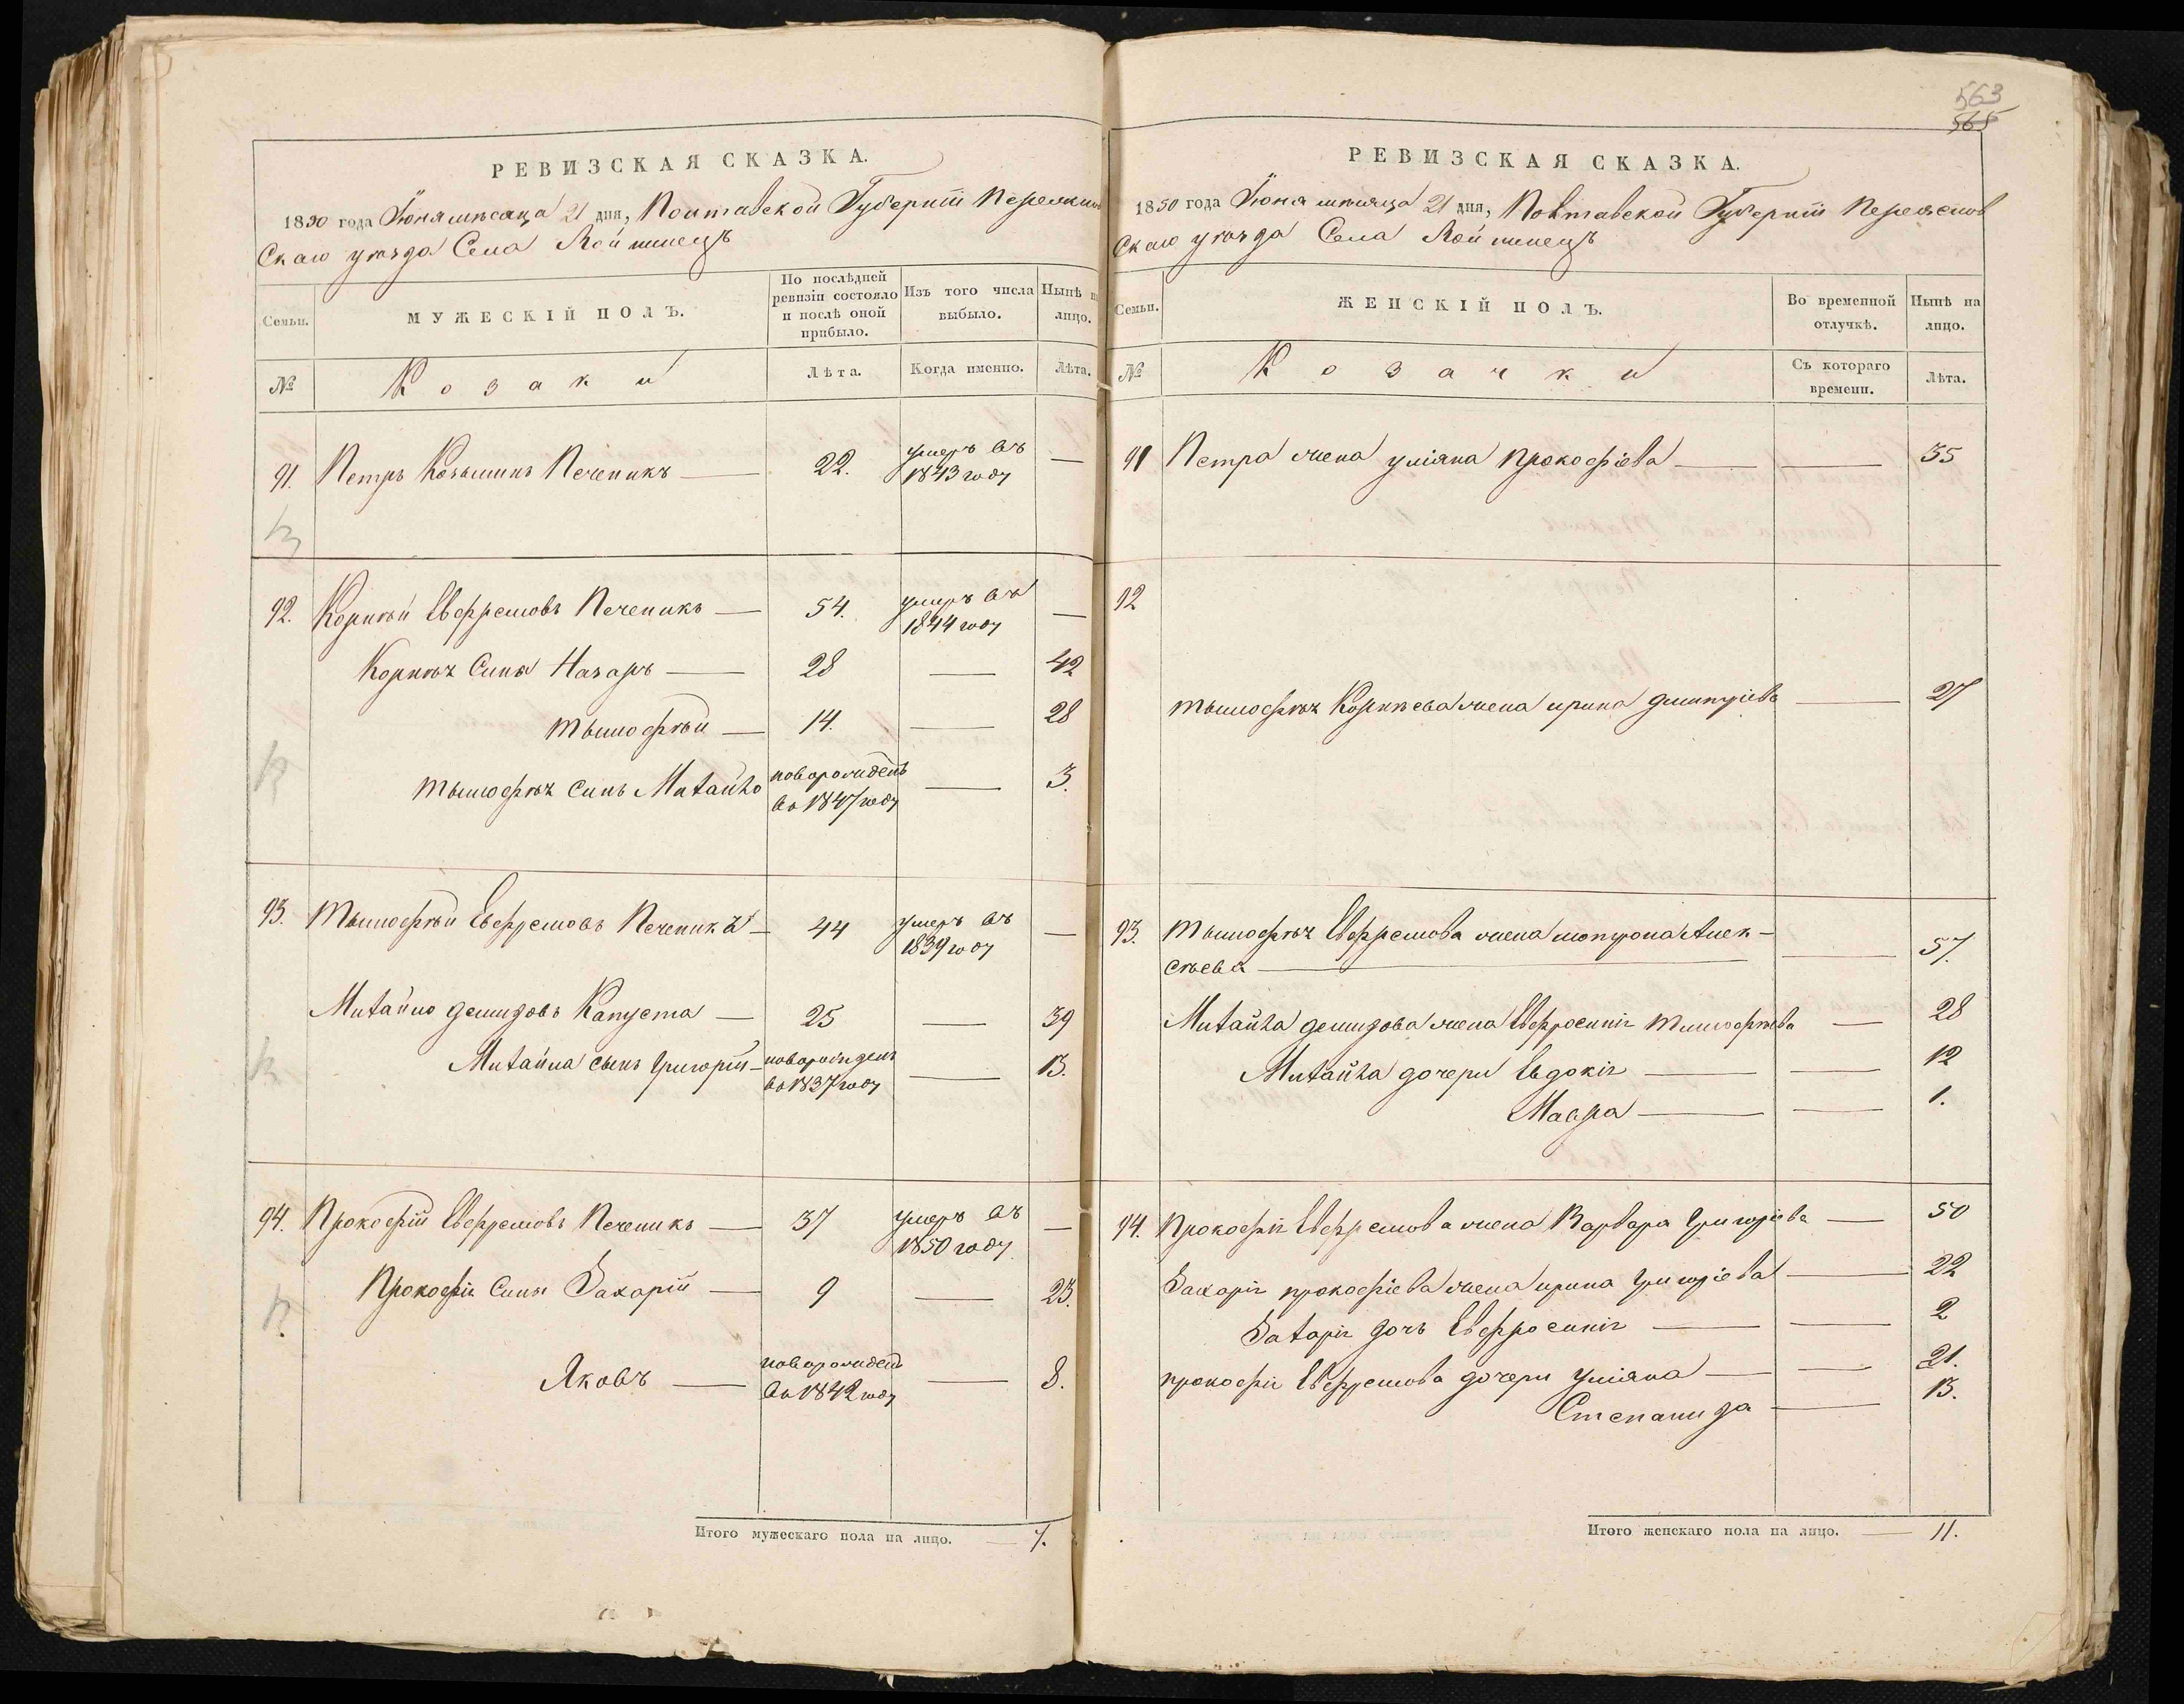 РЕВИЗСКАЯ СКАЗКА.
1850 года Іюня мѣсяца 21 дня, Полтавской Губерніи Переяслов
Скаго уѣзда Села
Семьи.
МУЖЕСКІЙ ПОЛЪ.
По послѣдней ревизіи состояло и послѣ оной прибыло.
Изъ того числа выбыло.
Нынѣ на лицо.
№
Козаки
Лѣта.
Когда именно.
Лѣта.
91. Петръ Козьминъ Печеникъ — 22. умеръ въ —
1843 году
92. Корнѣй Евфремовъ Печеникъ — 54. умеръ въ —
1844 году
Корнѣя Сынъ Назаръ — 28 — 42
тымофѣй — 14. — 28
тымофѣя сынъ Михайло новорожденъ — 3.
въ 1847 году
93. Тымофѣй Евфремовъ Печеникъ — 44 умеръ въ —
1839 году
Михайло демидовъ Капуста — 25 — 39
Михайла сынъ Григорій — новорожденъ — 13.
въ 1837 году
94. Прокофій Евфремовъ Печеникъ — 37 умеръ въ —
1850 году
Прокофія Сынъ Захарій — 9 — 23.
Яковъ — новорожден — 8.
въ 1842 году
Итого мужескаго пола на лицо. — 7.
563
565
РЕВИЗСКАЯ СКАЗКА.
1850 года Іюня мѣсяца 21 дня, Полтавской Губерніи Переяслов
Скаго уѣзда Села
Семьи.
ЖЕНСКІЙ ПОЛЪ.
Во временной отлучкѣ.
Нынѣ на лицо.
№
Козачки
Съ котораго времени.
Лѣта.
91 Петра жена уліяна прокофіева — — 35
92
тымофѣя Корнѣева жена ирина дмитріева — 27
93. тымофѣя Евфремова жена мотрона Алек-
сѣева — — 57.
Михайла демидова жена Евфросинія тимофѣева — 28
Михайла дочери Евдокія — — 12
Мавра — — 1.
94. Прокофія Евфремова жена Варвара Григоріева — 50
Захарія прокофіева жена ирина Григоріева — 22
Захарія дочь Евфросинія — — 2
прокофія Евфремова дочери уліяна — — 21.
Степанида — 13.
Итого женскаго пола на лицо. — 11.